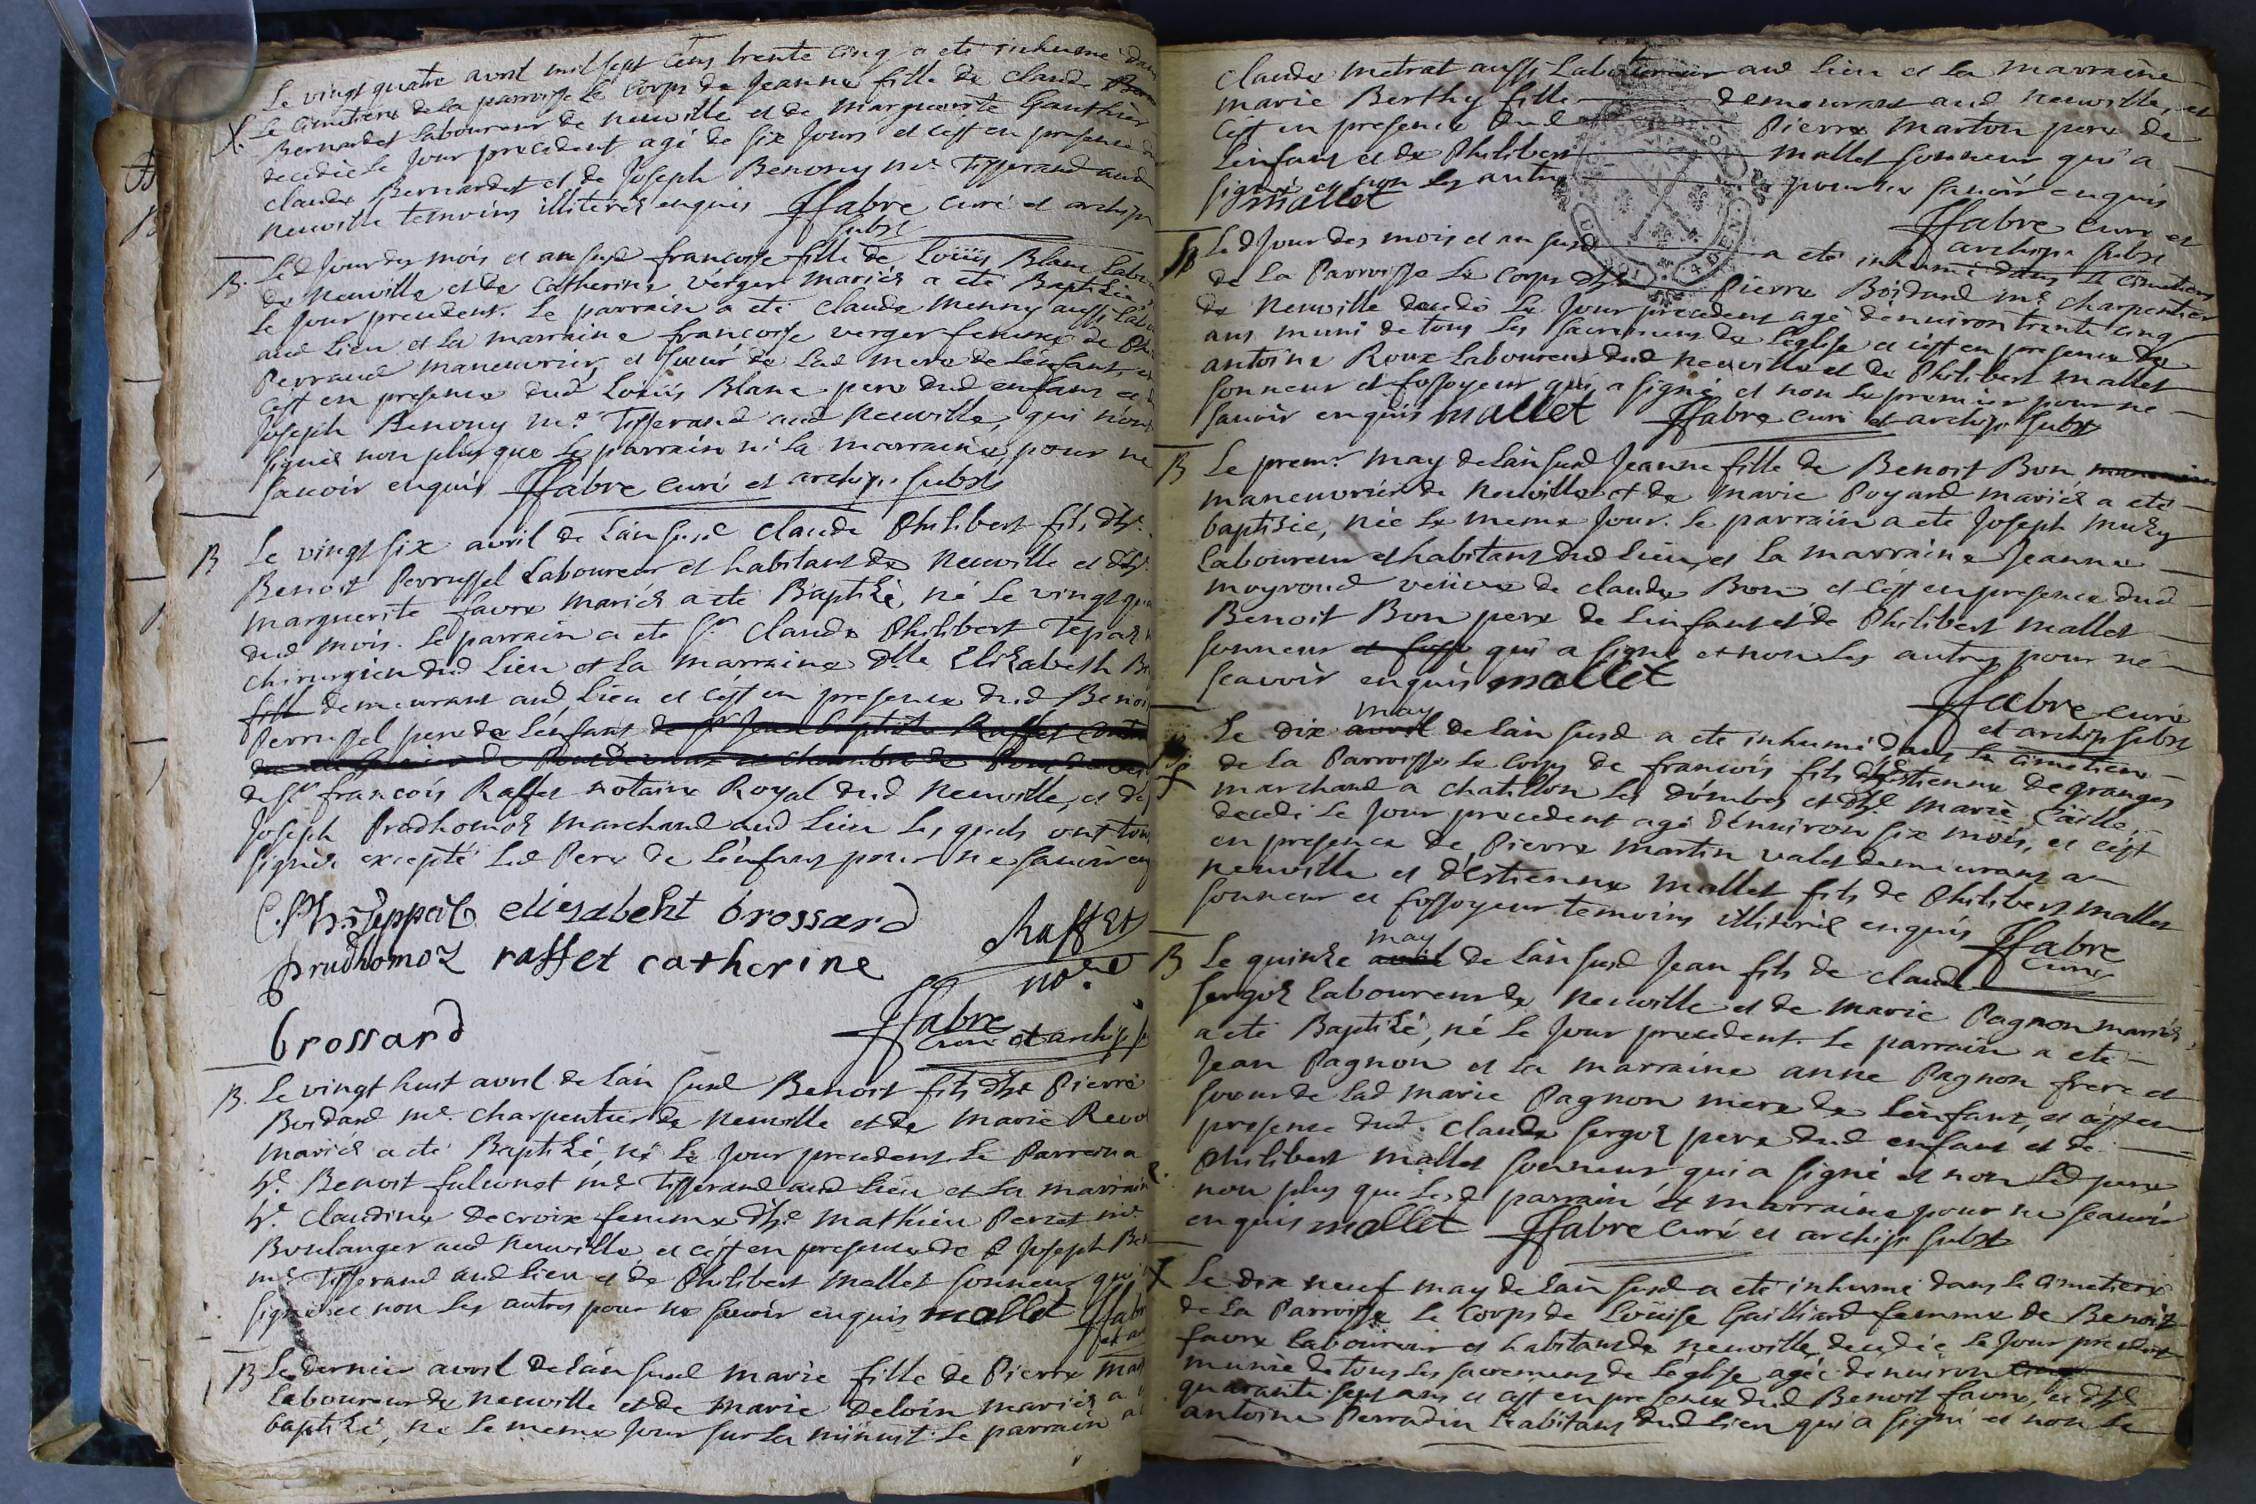 Le vingt quatre avril mil sept cens trente cinq a eté inhumé dans
X. Le cimetiere de la parroisse le corps de Jeanne fille de claude
Bernardet Laboureur de neuville et de marguerite Gauthier
decedée le Jour precedent agé de six Jours et c'est en presence
claude Bernardet et de Joseph Benony me. Tisserand aud
neuville temoins illiterés enquis ffabre curé et archip
subst
B. Led Jour des mois et an susd francoise fille de Loüis Blanc
de neuville et de catherine verger mariés a eté Baptisée
le Jour precedent. Le parrain a eté claude menny aussi
aud Lieu et la marraine francoise verger femme de
Perraud maneuvrier et soeur de Lad mere de L'enfant,
c'est en presence dud Loüis Blanc pere dud enfant et
Joseph Benony me. Tisserand aud neuville, qui n'ont
signés non plus que le parrain ni la marraine pour ne
savoir enquis ffabre curé et archip. subst
B Le vingt six avril de L'an susd claude Philibert fils dhe.
Benoit Perrussel Laboureur et habitant de neuville et dhe.
marguerite favre mariés a eté Baptisé, né le vingt
dud mois. Le parrain a eté Sr. claude Philibert
chirurgien dud Lieu et la marraine dlle Elizabeth
fille demeurant aud Lieu et c'est en presence dud
Perrussel pere de L'enfant de Sr Jean baptiste Raffet
de Sr francois Raffet notaire Royal dud neuville, et de
Joseph Prodhomoz marchand aud Lieu Les quels ont
signés excepté Led Pere de L'enfant pour ne savoir
elisabeht brossard
Raffet
prudhomoz raffet catherine
nore
brossard ffabre
curé et archip
B. Le vingt huit avril de L'an susd Benoit fils dhe Pierre
Boidard me. charpentier de neuville et de marie
mariés a eté Baptisé, né Le Jour precedent. Le Parrein a
he. Benoit fulconet me Tisserand aud Lieu et La
he. claudine Decroix femme dhe mathieu Perret me.
Boulanger aud neuville, et c'est en presence de Joseph
me. Tisserand aud Lieu et de Philibert mallet sonneur
signé et non Les autres pour ne savoir enquis mallet
B Le dernier avril de L'an susd marie fille de Pierre
Laboureur de neuville et de marie Deloin mariés a
baptisé, né le meme Jour sur La minuit. Le parrain
claude metrat aussi Laboureur aud Lieu et La marraine
marie Berthy fille demeurant aud neuville, et
c'est en presence dud Pierre marton pere de
L'enfant et de Philibert mallet sonneur qui a
signé et non les autres pour ne savoir enquis
mallet ffabre curé et
archip. subst
Led Jour des mois et an susd a eté inhumé dans le cimetiere
de La Parroisse Le corps dhe Pierre Boidard me. charpentier
de neuville decedé Le Jour precedent agé d'environ trente cinq
ans muni de tous Les sacremens de L'eglise et c'est en presence de
antoine Roux Laboureur dud neuville et de Philibert mallet
sonneur et fossoyeur qui a signé et non Le premier pour ne
savoir enquis mallet ffabre curé et archip. subst
B Le premr. may de L'an susd Jeanne fille de Benoit Bon
maneuvrier de neuville et de marie Poyard mariés a eté
baptisée, née Le meme Jour. Le parrain a eté Joseph
Laboureur et habitant dud Lieu, et La marraine Jeanne
moyroud veüve de claude Bon et c'est en presence dud
Benoit Bon pere de L'enfant et de Philibert mallet
sonneur et foss qui a signé et non Les autres pour ne
scavoir enquis mallet
ffabre curé
et archip subst
may
Le dix avril de L'an susd a eté inhumé dans Le cimetiere
de La Parroisse Le corps de francois fils dhe Estienne Degranges
marchand a chatillon Les dombes et dhe. marie Caille,
decedé Le Jour precedent agé d'environ six mois, et c'est
en presence de Pierre martin valet demeurant a
neuville et d'Estienne mallet fils de Philibert mallet
sonneur et fossoyeur temoins illiterés enquis ffabre
curé
may
B Le quinze avril de L'an susd Jean fils de claude
Sergoz Laboureur de neuville et de marie Pagnon mariés
a eté Baptisé, né Le Jour precedent. Le parrain a eté
Jean Pagnon et La marraine anne Pagnon frere et
soeur de Lad marie Pagnon mere de L'enfant, et c'est en
presence dud. claude Sergoz pere dud enfant et de
Philibert mallet sonneur, qui a signé et non Led pere
non plus que Lesd parrain et marraine pour ne scavoir
enquis mallet ffabre curé et archip. subst
X Le dix neuf may de L'an susd a eté inhumé dans le cimetiere
de La Parroisse Le corps de Loüise Gailliard femme de Benoit
favre Laboureur et habitant de neuville decedée le Jour precedent
munie de tous Les sacremens de L'eglise agée d'environ cinq
quarante sept ans et c'est en presence dud Benoit favre, et dhe
antoine Perradin habitant dud Lieu qui a signé et non le